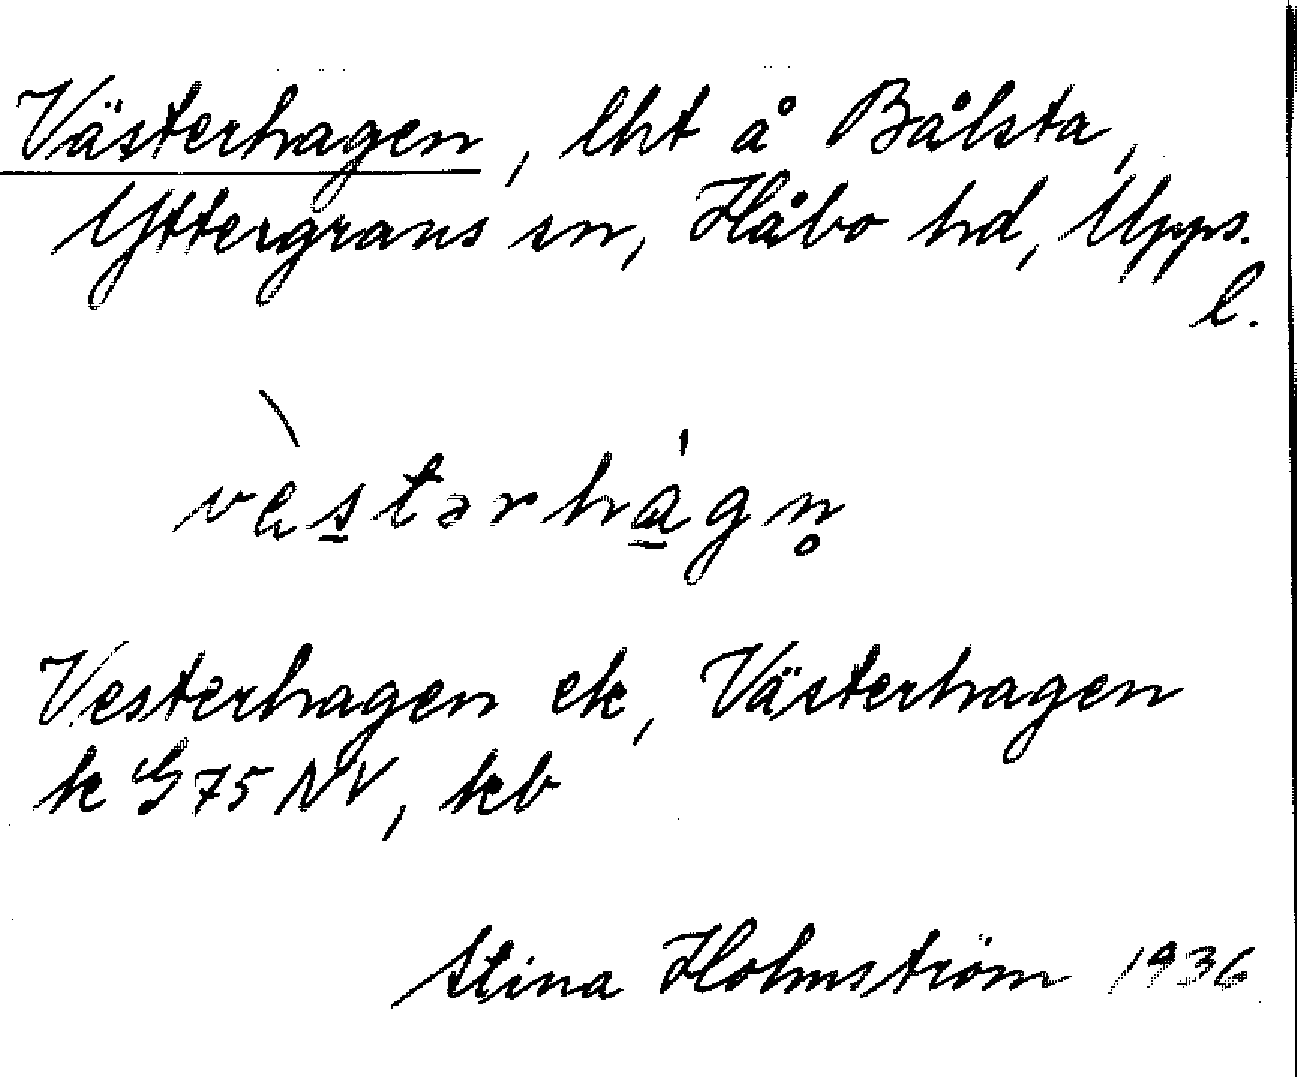 Västerhagen, lht å Bålsta,
Yttergrans sn, Håbo hd, Upps.
l.
vè̀s̲tərhá̲gn̥
Vesterhagen ek, Västerhagen
k G 75 NV, kb
Stina Holmström 1936